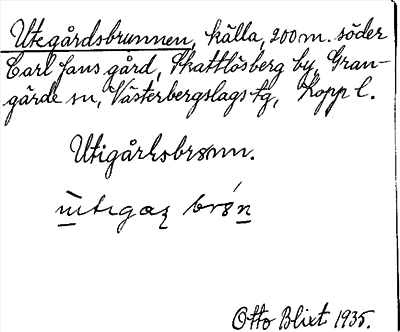 Utegårdsbrunnen, källa, 200 m. söder
Carl Jans gård, Skattlösberg by, Gran-
gärde sn, Västerbergslags tg, Kopp l.
Utigårsbrønn.
Otto Blixt 1935.